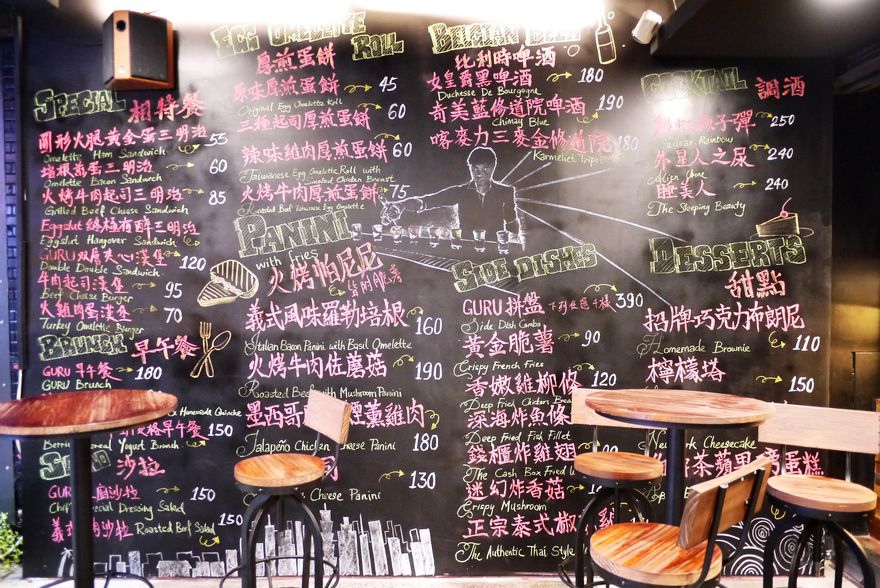 SPECIAL 相特餐
圓形火腿黃金蛋三明治 55
Omelette Ham Sandwich
培根煎蛋三明治 60
Omelette Bacon Sandwich
火烤牛肉起司三明治 85
Grilled Beef Cheese Sandwich
Eggslut
Eggslut Hangover Sandwich
GURU双層夾心漢堡 120
Double Double Sandwich
牛肉起司漢堡 95
Beef Cheese Burger
火雞肉蛋漢堡 70
Turkey Omelette Burger
BRUNCH 早午餐
GURU 早午餐 180
GURU Brunch
Homemade Quinche
早午餐 150
Yogurt Brunch
沙拉
GURU 沙拉 150
Special Dressing Salad
義式 沙拉 Roasted Beef Salad 150
EGG OMELETTE ROLL
厚煎蛋餅
原味厚煎蛋餅 45
Original Egg Omelette Roll
三種起司厚煎蛋餅 60
辣味雞肉厚煎蛋餅 60
Taiwanese Egg Omelette Roll with
Chicken Breast
火烤牛肉厚煎蛋餅 75
Roasted Beef Taiwanese Egg Omelette
PANINI
with fries
火烤帕尼尼
皆附脆薯
義式風味羅勒培根 160
Italian Bacon Panini with Basil Omelette
火烤牛肉佐蘑菇 190
Roasted Beef with Mushroom Panini
墨西哥 煙薰雞肉
Jalapeño Chicken Cheese Panini 180
130
Cheese Panini
比利時啤酒
女皇爵黑啤酒 180
Duchesse De Bourgogne
奇美藍修道院啤酒 190
Chimay Blue
喀麥力三麥金修道院 180
Karmeliet Tripel
SIDE DISHES
GURU 拼盤 390
Side Dish Combo
黃金脆薯 90
Crispy French Fries
香嫩雞柳條 120
Deep Fried Chicken
深海炸魚條
Deep Fried Fish Fillet
錢櫃炸雞翅
The Cash Box Fried
迷幻炸香菇
Crispy Mushroom
正宗泰式椒
The Authentic Thai Style
COCKTAIL 調酒
子彈 250
Rainbow
外星人之尿 240
Alien
睡美人 240
The Sleeping Beauty
DESSERTS
甜點
招牌巧克力布朗尼 110
Homemade Brownie
檸檬塔 150
Cheesecake
茶蘋果 蛋糕